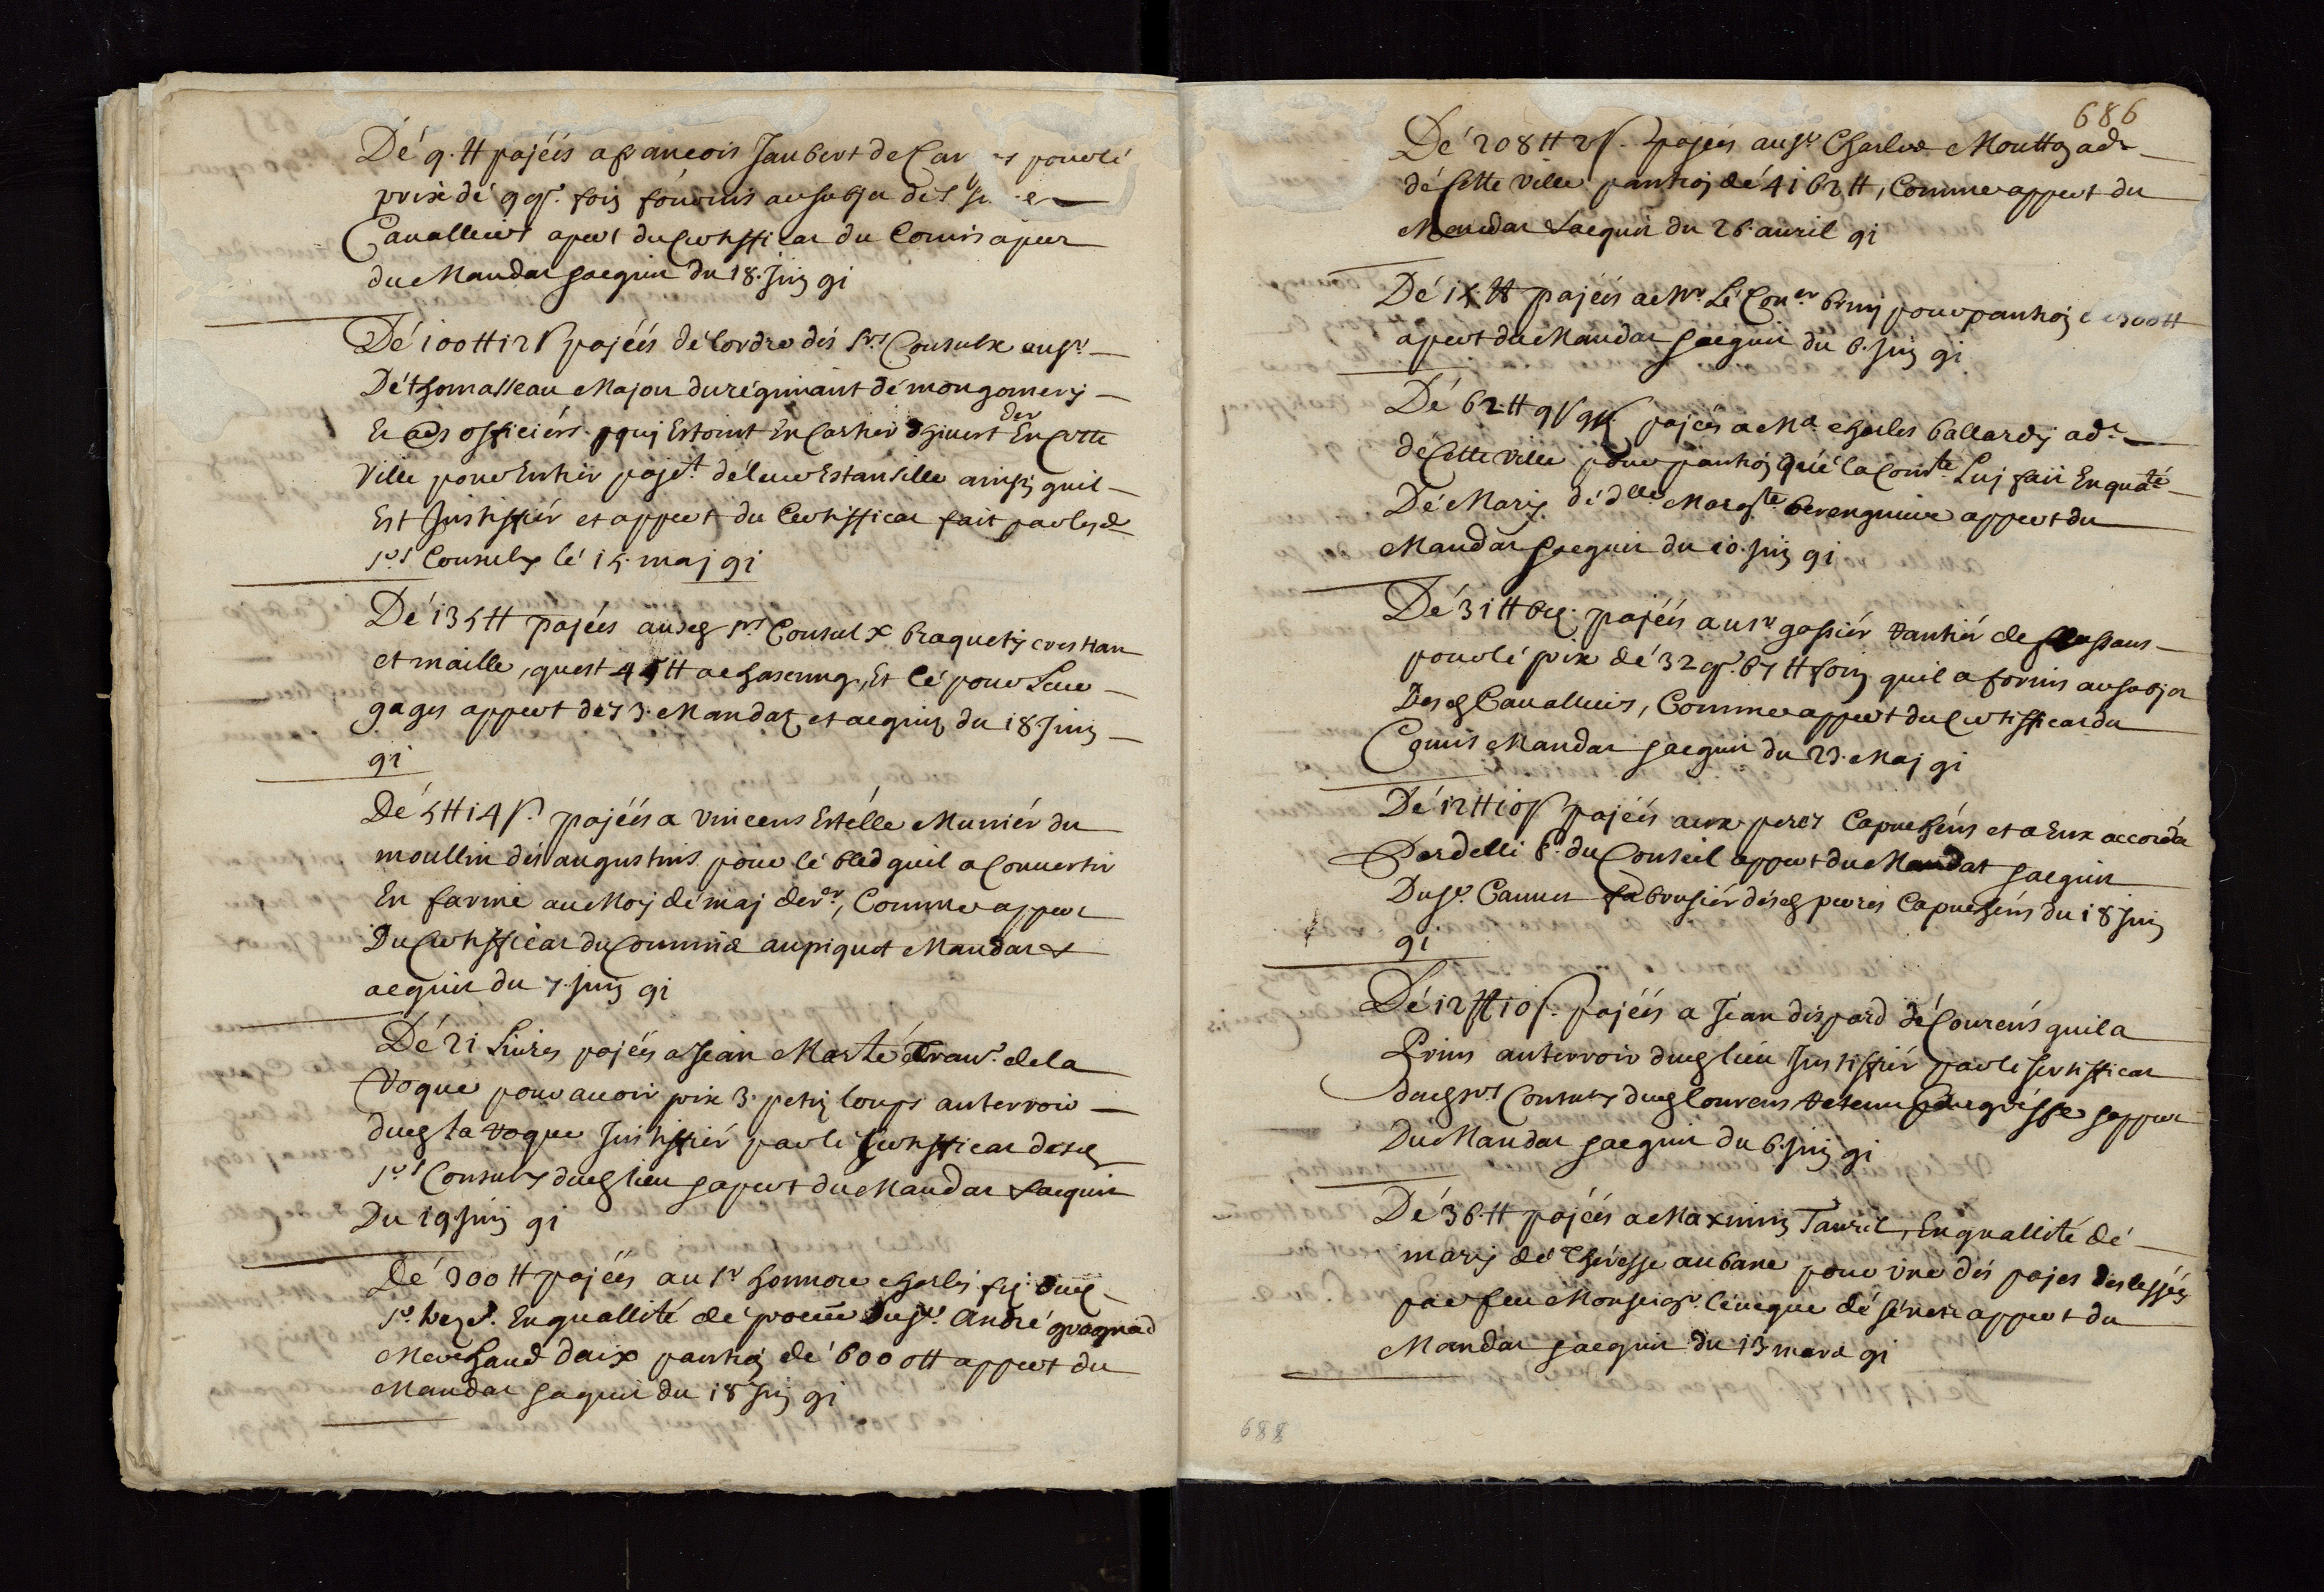 Dé 9 tt pajéés a francois Jaubert de Car pour lé
prix dé 9 qx. foin fournis au subjet des
Cavalliers apert du Certifficat du Comis apert
du Mandat & acquit du 18. Juin 91
Dé 100 tt 12 s pajéés dé Lordre dés srs Consulx au sr.
Dé thomasseau Major du régimant dé mongomery
Et ads officiérs quj Estoint En Cartier dhivert der En Cette
Ville pour Entier pajet. dé leur Estansille ainsy quil
Est Justiffiér et appert du Certifficat fait par lesd
srs Consulx lé 15. maj 91
Dé 135 tt pajéés ausd srs Consulx braquety crestian
et maille, quest 45 tt a chascung, Et cé pour Leur
gages appert des 3. Mandatz et acquitz du 18. Juin
91
Dé 5 tt 14 s. pajéés a Vincens Estélle Muniér du
moullin dés augustins pour lé bled quil a Convertir
En farine au Moy dé maj der., Comme appert
Du Certifficat du Commis au piquet Mandat &
acquit du 7. Juin 91
Dé 21 Livres pajéés a Jean Marté travr. de la
Roque pour avoir prix 3. petitz loups au terroir
dud la roque Justiffiér par le Certifficat desd
srs Consulx dud lieu & apert du Mandat & acquit
Du 19 Juin 91
Dé 300 tt pajéés au sr honnore charles fis
sr. En quallité dé du sr. André gragnad
Merchand daix pantion dé 6000 tt appert du
Mandat & aquit du 18 Juin 91
686
Dé 208 tt 2 s. pajéés au sr Charles Moutton adt
dé Cette Ville pantion dé 4162 tt, Comme appert du
Mandat & acquit du 26. avril 91
Dé 15 tt pajéés a Mr Lé Conser bruny pour pantion de 300 tt
apert du Mandat & acquit du 6. Juin 91
Dé 62 tt 9 s 9 d pajéés a Me charles ballardy adt
dé Cette Ville pour pantion qué la Comté. Luj fait En quaté
Dé Mary dé dlle Margte berenguiere appert du
Mandat & acquit du 10. Juin 91
Dé 31 tt pajéés au sr gassiér rantiér de flassans
pour lé prix dé 32 qx. 67 tt foin quil a fornis au subjet
Desd Cavalliers, Comme appert du Certifficat du
Comis Mandat & acquit du 23. Maj 91
Dé 12 tt 10 s pajéés aux peres Capuchins et a Eux accordé
Par delli bon. du Conseil appert du Mandat & acquit
Du sr. Cannet fabrusiér désd peres Capuchins du 18 Juin
91
Dé 12 tt 10 s. pajéés a Jéan dispard dé Courens quil a
Prins au terroir dud lieu Justiffiér par le Certifficat
dud srs Consulx dud Courens & appert
Du Mandat & acquit du 6. Juin 91
Dé 36 tt pajéés a Maximin Tauril, En quallité dé
mary dé Théresse aubane pour une dés pajes deslessées
par feu Monseigr. lévéque dé sénéts appert du
Mandat & acquit du 13 mars 91
688